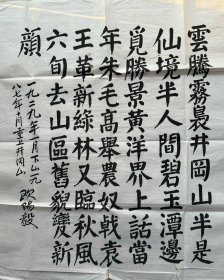 雲騰霧晨井岡山半是
仙境半人間碧玉潭邊
覓勝景黄洋界上話當
年朱毛高舉農奴戟袁
王革新綠林又臨秋風
六旬去山區舊貌變新
顔
一九二九年一月下山
八七年十月重上井岡山
欧阳毅